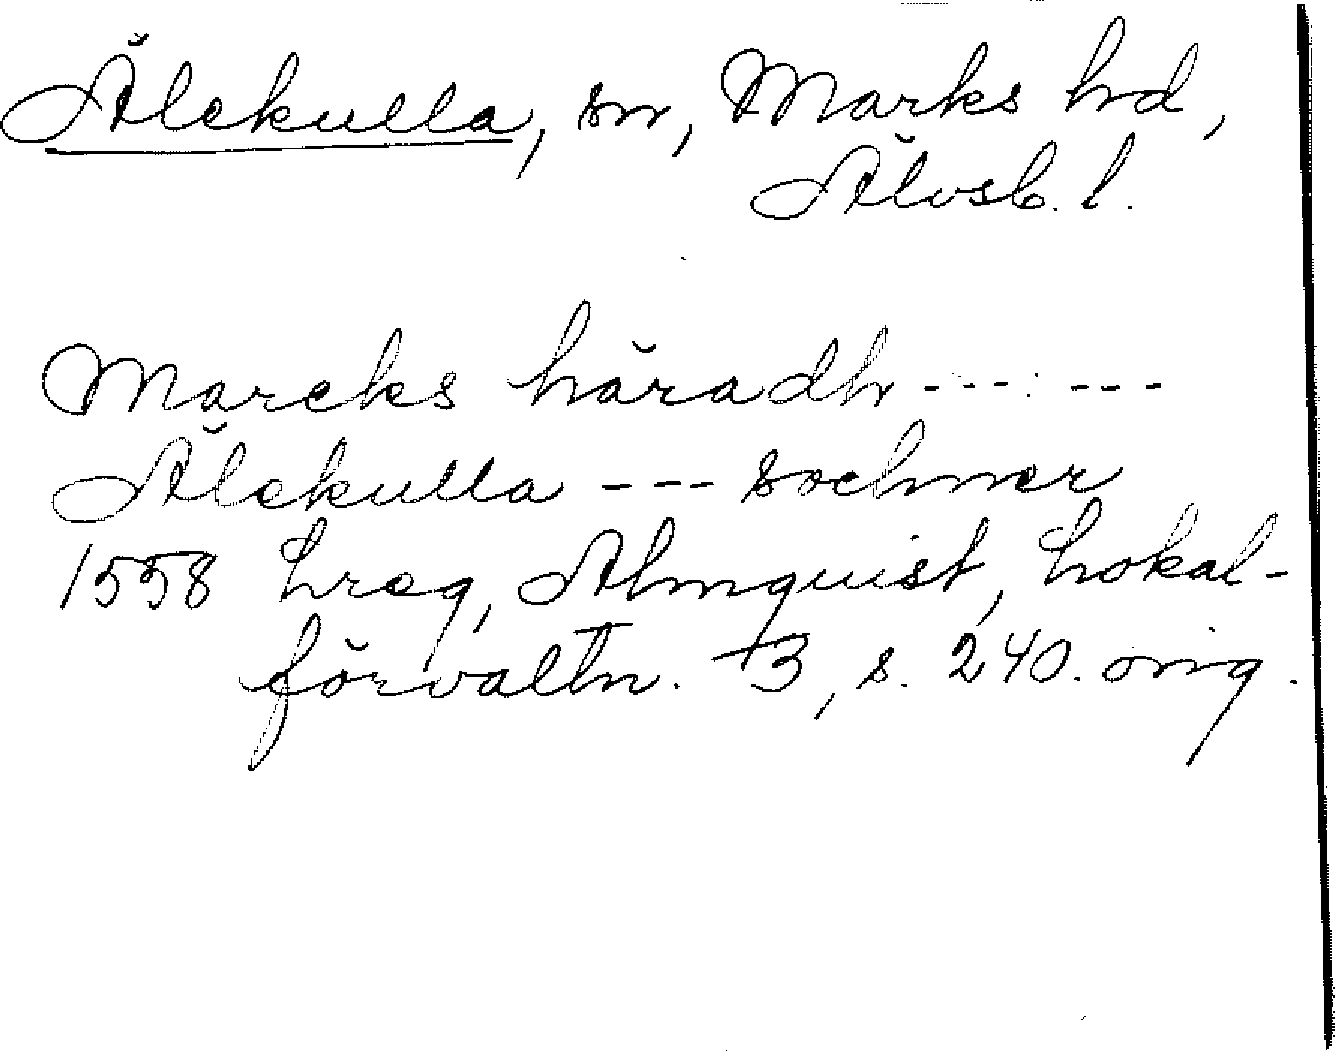 Älekulla, sn, Marks hd,
Älvsb. l.
Marcks häradh --- ---
Älekulla --- sochner
1558 Lreg, Almquist, Lokal-
förvaltn. 3, s. 240. orig.